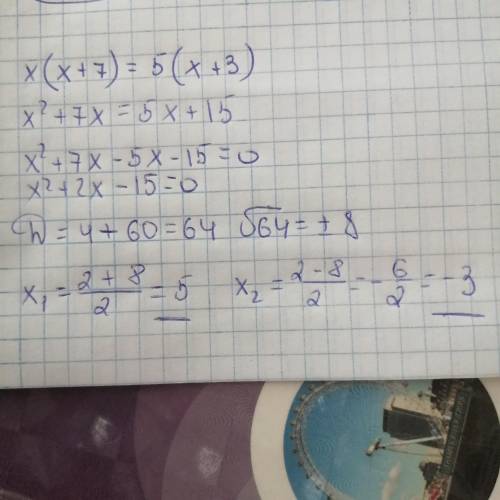 x(x+7)=5(x+3)
x²+7x=5x+15
x²+7x-5x-15=0
x²+2x-15=0
D=4+60=64 √64=±8
x₁=(2+8)/2=5 x₂=(2-8)/2=-6/2=-3